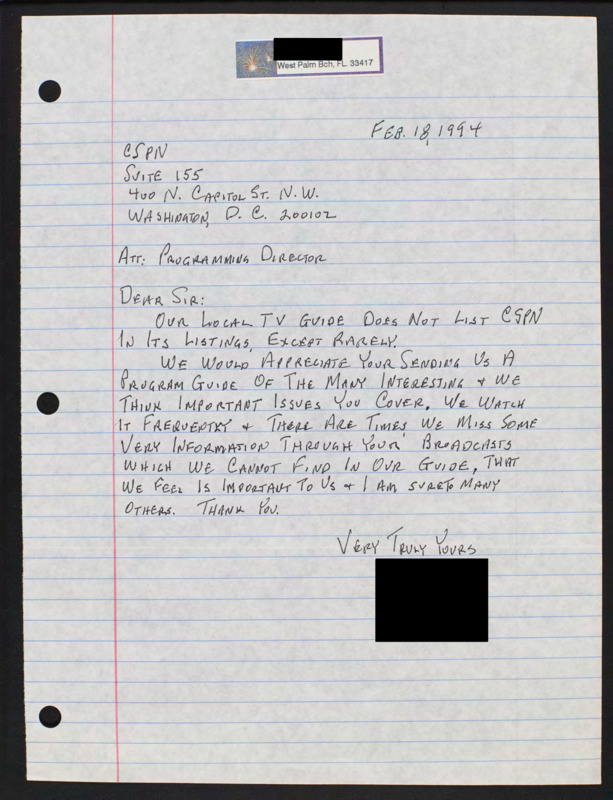 West Palm Bch, FL. 33417
FEB. 18, 1994
CSPN
SUITE 155
400 N. CAPITOL ST. N.W.
WASHINGTON, D. C. 200102
ATT: PROGRAMMING DIRECTOR
DEAR SIR:
OUR LOCAL TV GUIDE DOES NOT LIST CSPN
IN ITS LISTINGS, EXCEPT RARELY.
WE WOULD APPRECIATE YOUR SENDING US A
PROGRAM GUIDE OF THE MANY INTERESTING + WE
THINK IMPORTANT ISSUES YOU COVER. WE WATCH
IT FREQUENTRY + THERE ARE TIMES WE MISS SOME
VERY INFORMATION THROUGH YOUR BROADCASTS
WHICH WE CANNOT FIND IN OUR GUIDE, THAT
WE FEEL IS IMPORTANT TO US + I AM SURE TO MANY
OTHERS. THANK YOU.
VERY TRULY YOURS